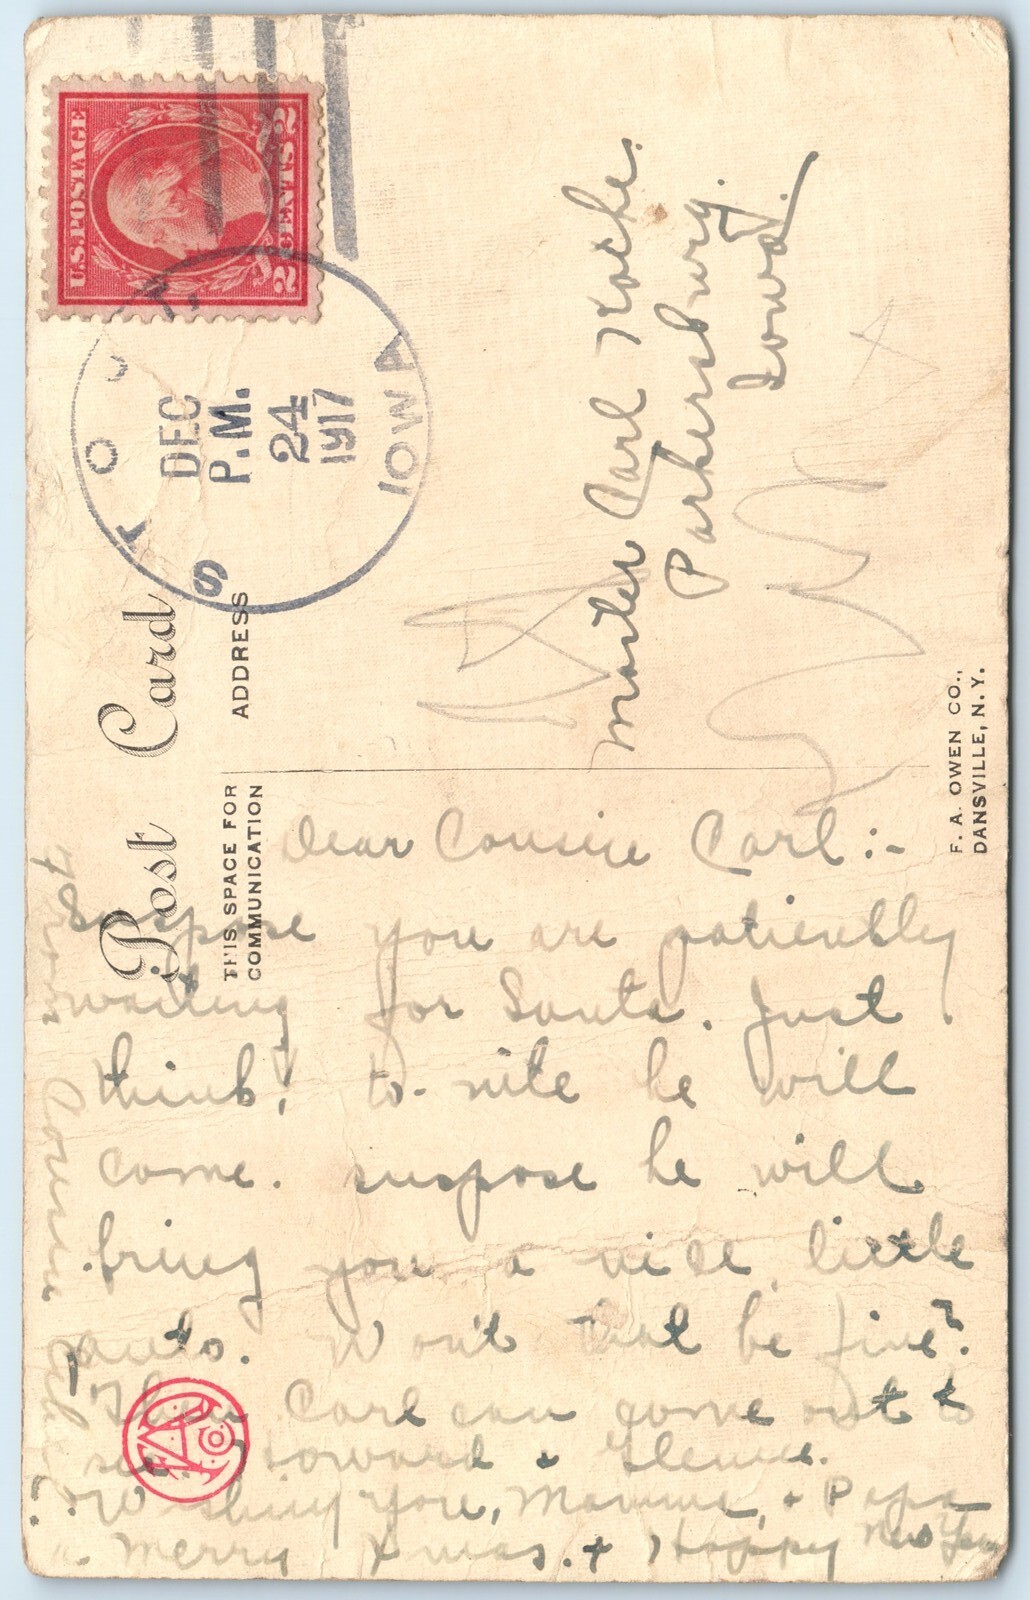 Post Card
THIS SPACE FOR
COMMUNICATION
ADDRESS
U.S. POSTAGE
2 CENTS 2
STOUT
DEC
P.M.
24
1917
IOWA
Master Carl
Parkersburg.
Iowa.
F. A. OWEN CO.,
DANSVILLE, N. Y.
Dear Cousin Carl:-
Suspose you are patiently
waiting for Santa. Just
think! to-nite he will
come. suspose he will
bring you a nice little
auto. Won't that be fine?
Then Carl can come out to
see Howard + Glenn.
Wishing You, Mamma, + Papa
a Merry Xmas. + Happy New Year
From Cousin